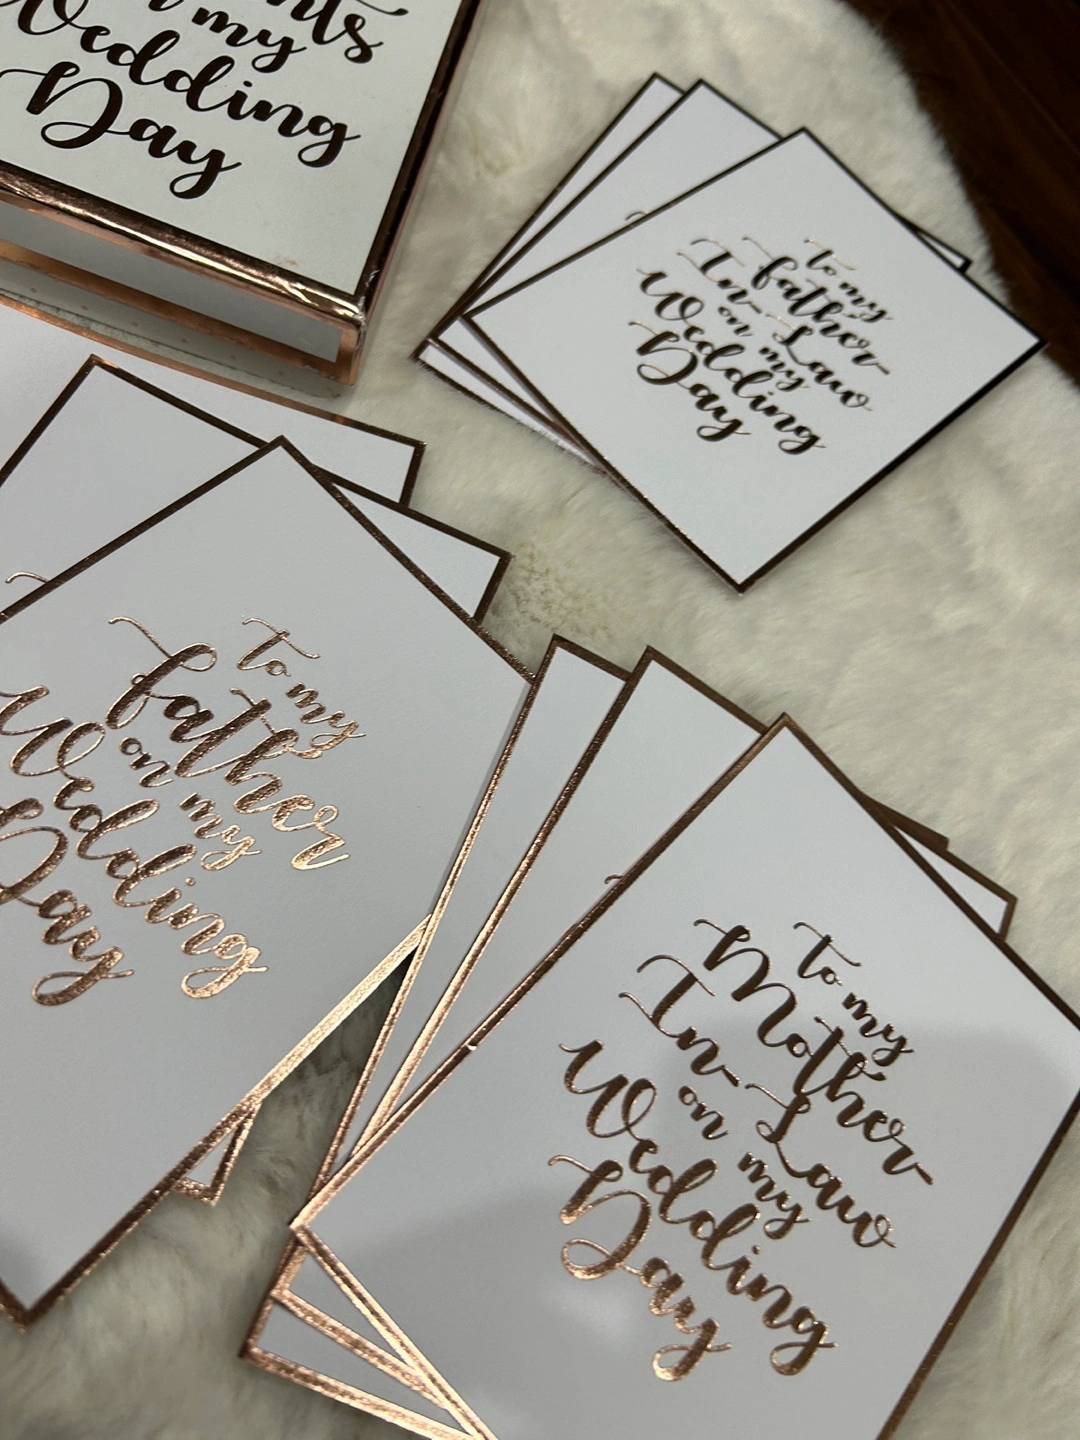 my
Wedding
Day
to my
father-
In-Law
on my
Wedding
Day
to my
father
on my
Wedding
Day
to my
Mother-
In-Law
on my
Wedding
Day